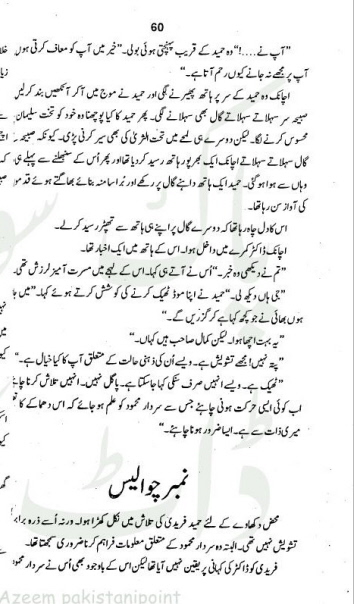 60
"آپ نے....!" وہ حمید کے قریب پہنچتی ہوئی بولی۔ "خیر میں آپ کو معاف کرتی ہوں
آپ پر مجھے نہ جانے کیوں رحم آتا ہے۔"
اچانک وہ حمید کے سر پر ہاتھ پھیرنے لگی اور حمید نے موج میں آکر آنکھیں بند کر لیں
صبیحہ سر سہلاتے سہلاتے گال بھی سہلانے لگی۔ پھر حمید کا کیا پوچھنا وہ خود کو تخت سلیمان
محسوس کرنے لگا۔ لیکن دوسرے ہی لمحے میں تخت الثریٰ کی بھی سیر کرنی پڑی۔ کیونکہ صبیحہ
گال سہلاتے سہلاتے اچانک ایک بھرپور ہاتھ رسید کر دیا تھا اور پھر اُس کے سنبھلنے سے پہلے ہی
وہاں سے ہوا ہو گئی۔ حمید ایک ہاتھ داہنے گال پر رکھے اور بُرا سامنہ بنائے بھاگتے ہوئے قدموں
کی آواز سن رہا تھا۔
اس کا دل چاہ رہا تھا کہ دوسرے گال پر اپنے ہی ہاتھ سے تھپڑ رسید کر لے۔
اچانک ڈاکٹر کمرے میں داخل ہوا۔ اس کے ہاتھ میں ایک اخبار تھا۔
"تم نے دیکھی وہ خبر۔" اُس نے آتے ہی کہا۔ اس کے لہجے میں مسرت آمیز لرزش تھی۔
"جی ہاں دیکھ لی۔" حمید نے اپنا موڈ ٹھیک کرنے کی کوشش کرتے ہوئے کہا۔ "میں جا
ہوں بھائی نے جو کچھ کہا ہے کر گزریں گے۔"
"یہ بہت اچھا ہوا۔ لیکن کمال صاحب ہیں کہاں۔"
"پتہ نہیں! مجھے تشویش ہے۔ ویسے اُن کی ذہنی حالت کے متعلق آپ کا کیا خیال ہے۔"
"ٹھیک ہے۔ ویسے انہیں صرف سنکی کہا جا سکتا ہے۔ پاگل نہیں۔ انہیں تلاش کرنا چا
اب کوئی ایسی حرکت نہ ہونی چاہئے جس سے سردار محمود کو علم ہو جائے کہ اس دھماکے کا
میری ذات سے ہے۔ ایسا ضرور ہونا چاہئے۔"
نمبر چوالیس
محض دکھاوے کے لئے حمید فریدی کی تلاش میں نکل کھڑا ہوا۔ ورنہ اُسے ذرہ برابر
تشویش نہیں تھی۔ البتہ وہ سردار محمود کے متعلق معلومات فراہم کرنا ضروری سمجھتا تھا۔
فریدی کو ڈاکٹر کی کہانی پر یقین نہیں آیا تھا لیکن اس کے باوجود بھی اُس نے سردار محمود
Azeem pakistanipoint